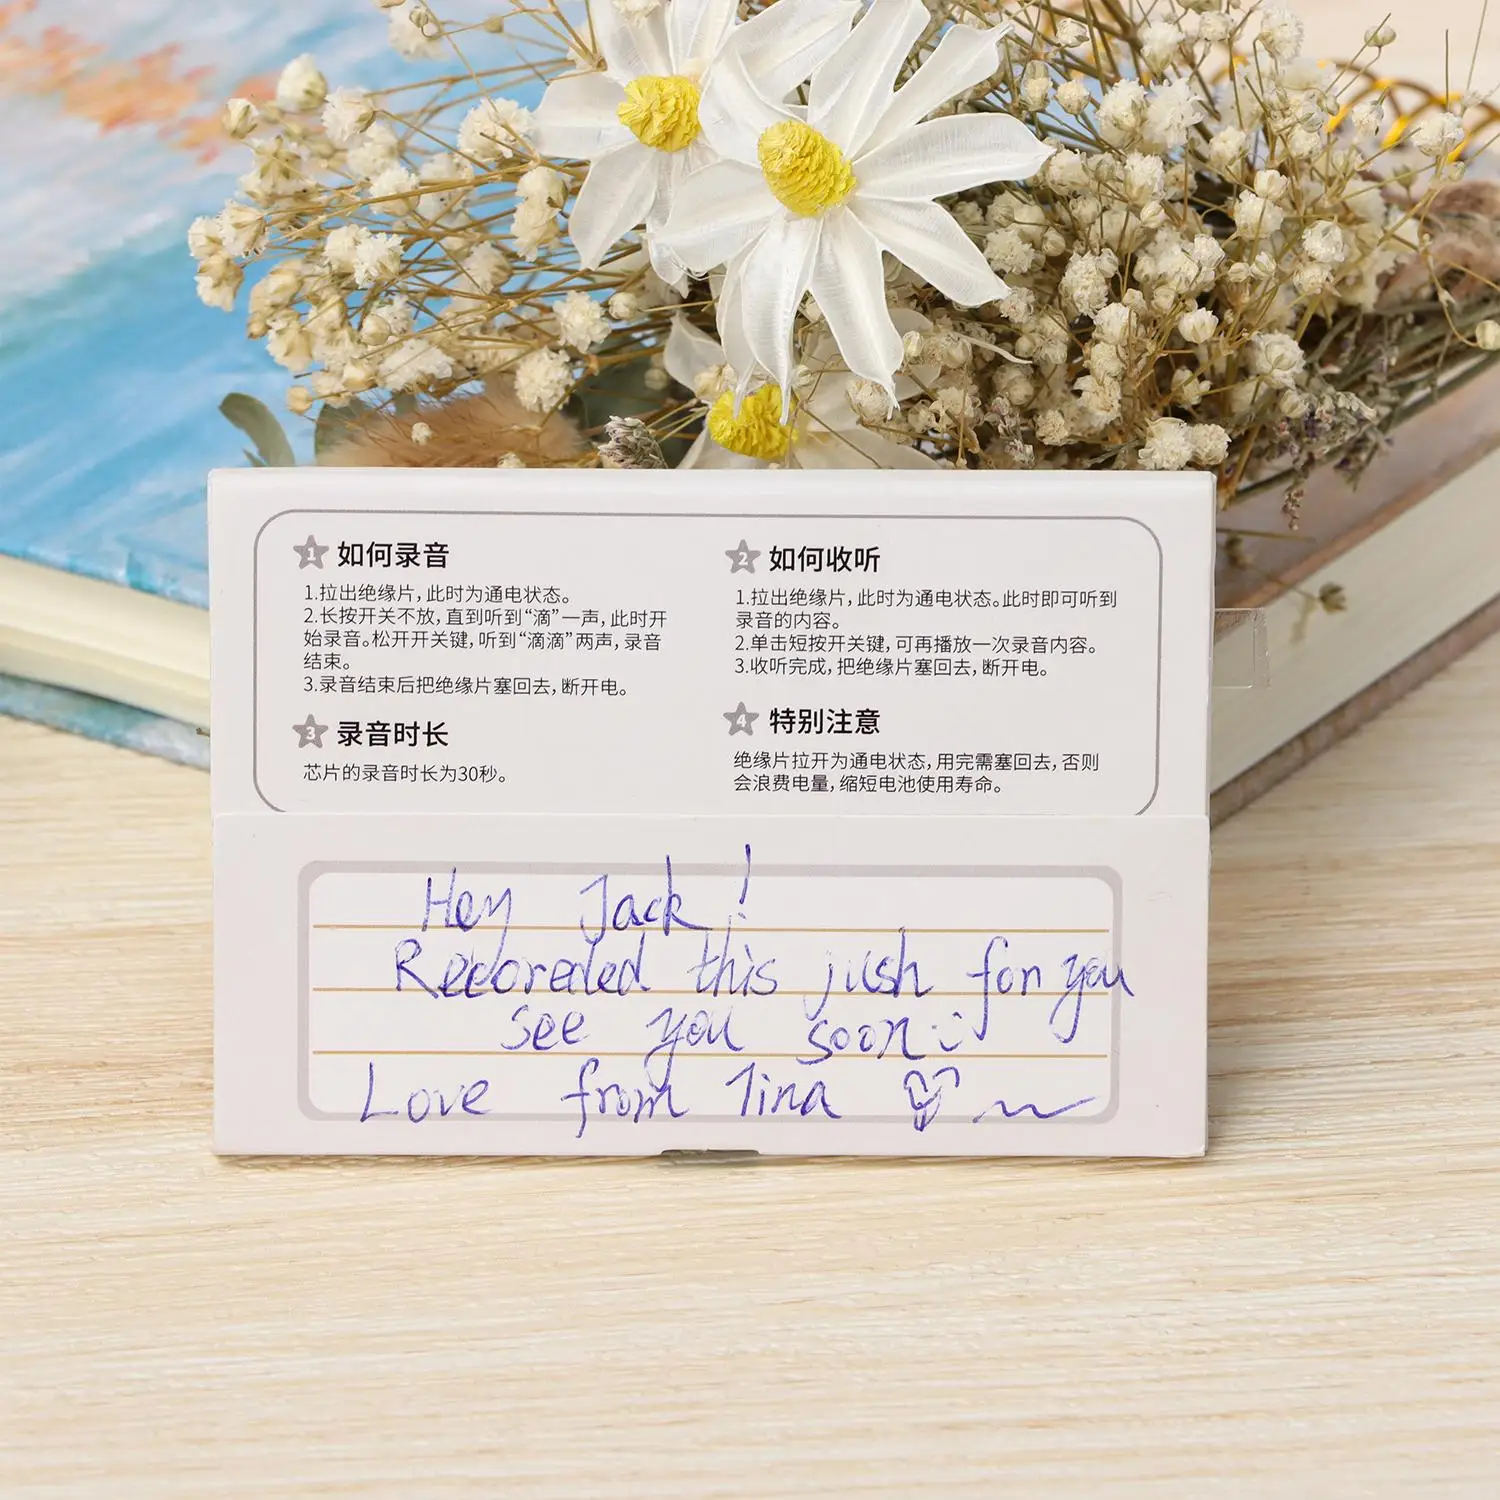 1 如何录音
1.拉出绝缘片，此时为通电状态。
2.长按开关不放，直到听到“滴”一声，此时开
始录音。松开开关键，听到“滴滴”两声，录音
结束。
3.录音结束后把绝缘片塞回去，断开电。
2 如何收听
1.拉出绝缘片，此时为通电状态。此时即可听到
录音的内容。
2.单击短按开关键，可再播放一次录音内容。
3.收听完成，把绝缘片塞回去，断开电。
3 录音时长
芯片的录音时长为30秒。
4 特别注意
绝缘片拉开为通电状态，用完需塞回去，否则
会浪费电量，缩短电池使用寿命。
Hey Jack!
Recoreded this jush for you
see you soon :)
Love from Tina ♡~